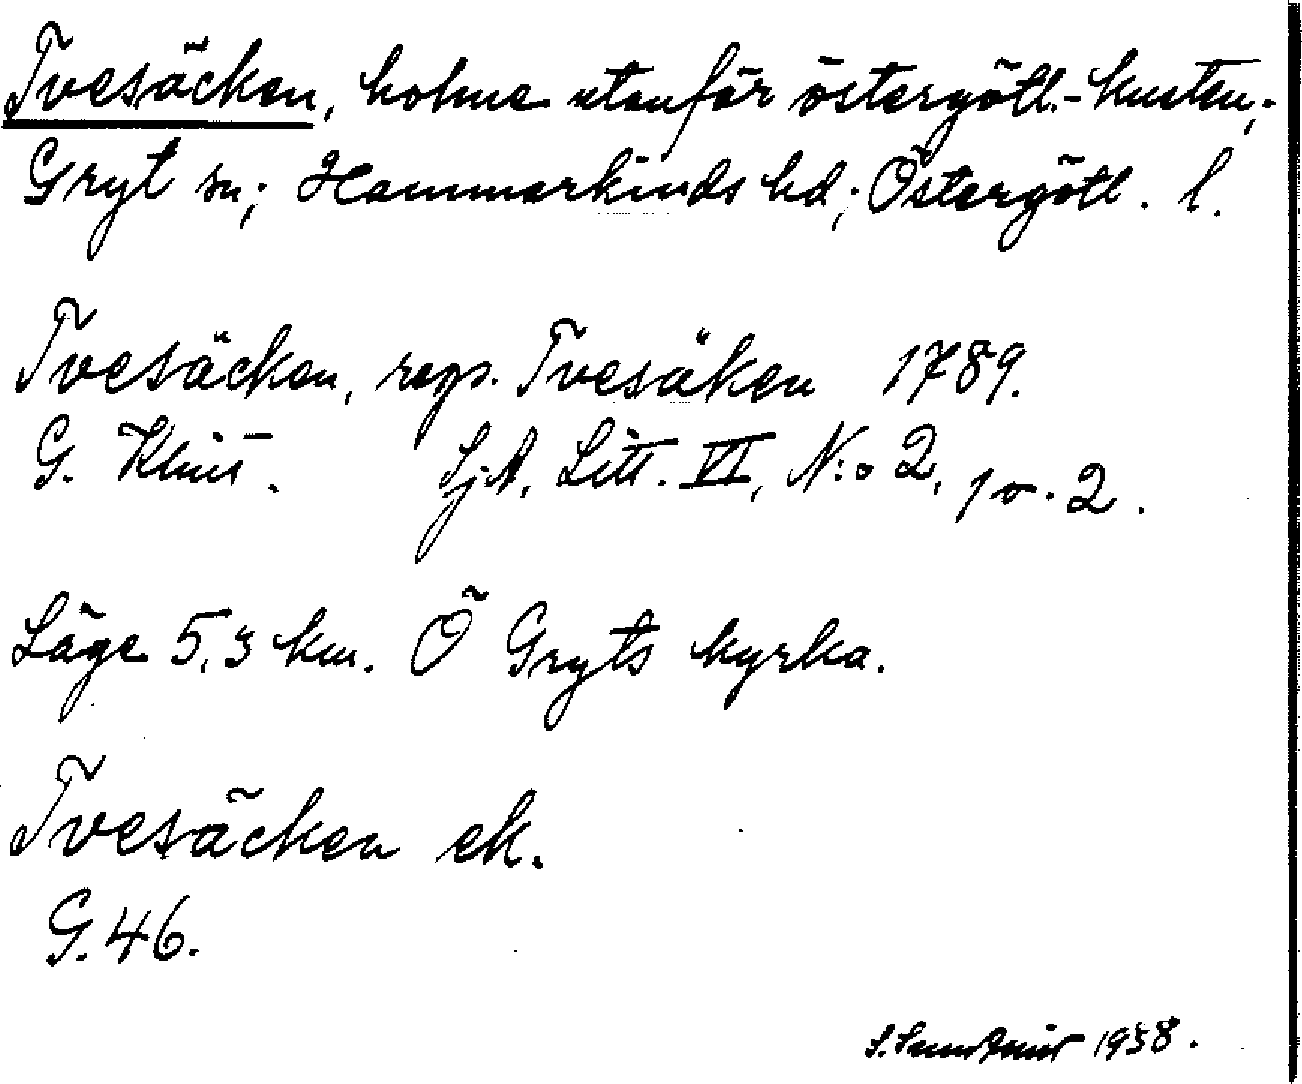 Tvesäcken, holme utanför östergötl.-kusten,-
Gryt sn; Hammarkinds hd; Östergötl. l.
Tvesäcken, resp. Tvesäken 1789.
G. Klint. SjA, Litt. VI, N:o 2, 10. 2.
Läge 5,3 km. Ö Gryts kyrka.
Tvesäcken ek.
G. 46.
S. 1938.